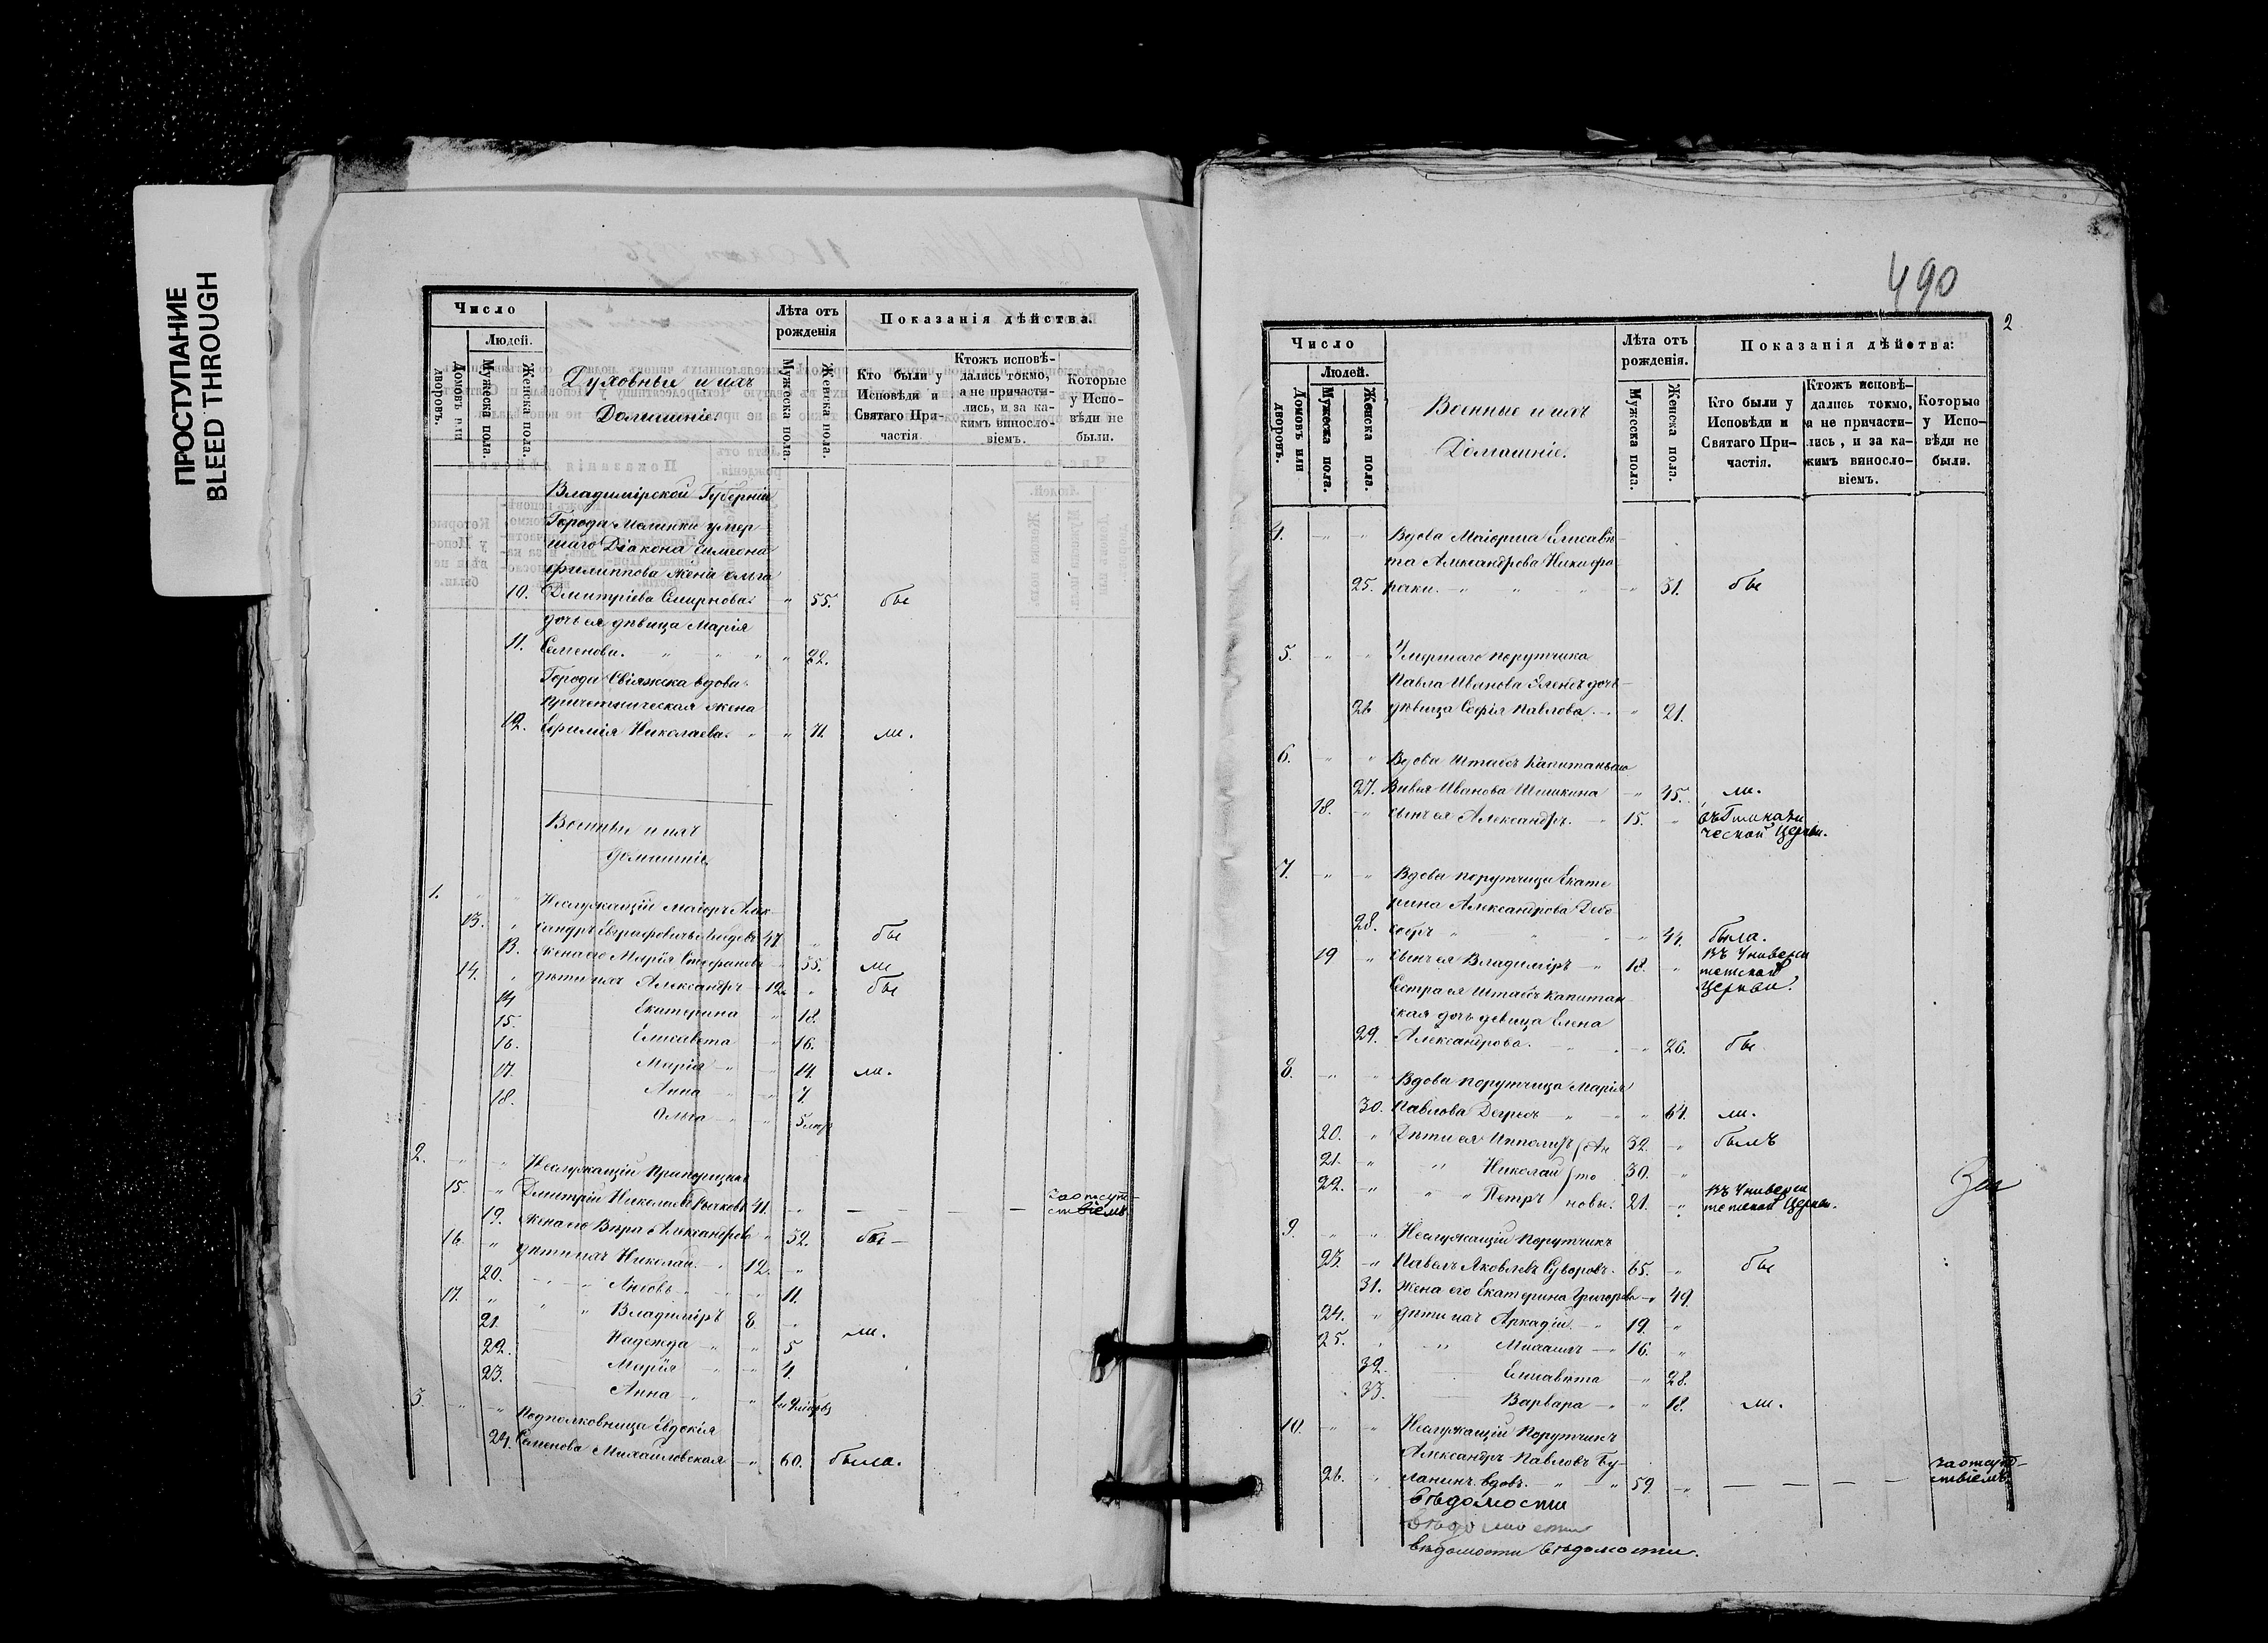 ПРОСТУПАНИЕ
BLEED THROUGH
Число
Людей.
Домовъ или дворовъ.
Мужеска пола.
Женска пола.
Духовные и ихъ
Домашніе.
Лѣта отъ
рожденія
Мужеска пола.
Женска пола.
Показанія дѣйства.
Кто были у
Исповѣди и
Святаго При-
частія
Ктожъ исповѣ-
дались токмо,
а не причасти-
лись, и за ка-
кимъ винosло-
віемъ.
Которые
у Испо-
вѣди не
были.
Владимірской Губерніи
Города Меленки умер
шаго Діакона Симеона
Филиппова жена Ольга
10. Дмитріева Смирнова. " 55. бы
дочь ея дѣвица Марія
11. Семенова. " " " " 22.
Города Свіяжска вдова
причетническая жена
12. Ефимія Николаева " " 71. ли.
Военные и ихъ
домашніе
1. " " Неслужащій Маіоръ Алек
13. " сандръ Евграфовичъ 47 " бы
13. жена его Марія Стефанова " 35. ли
14. " дѣти ихъ Александръ 12 " бы
14 Екатерина " 18.
15. Елисавета " 16.
16. Марія " " 14. ли.
17. Анна " " 7.
18. Ольга " " 5
2. " " Неслужащій Прапорщикъ
15. " Дмитрій Николаевъ 41. " — — — — за отсут-
ствіемъ
19. жена его Вѣра Александрова " 32. бы —
16. " дѣти ихъ Николай " 12. "
20. " " Любовь " " 11.
17. " " " Владиміръ 8. "
21. Надежда " " 5 ли.
22. Марія " " 4.
23. Анна " "
3. " " Подполковница Евдокія
24. Семенова Михайловская " 60. была.
490
2
Число
Людей.
Домовъ или дворовъ.
Мужеска пола.
Женска пола.
Военные и ихъ
Домашніе.
Лѣта отъ
рожденія.
Мужеска пола.
Женска пола.
Показанія дѣйства:
Кто были у
Исповѣди и
Святаго При-
частія.
Ктожъ исповѣ-
дались токмо,
а не причасти-
лись, и за ка-
кимъ винosло-
віемъ.
Которые
у Испо-
вѣди не
были.
4. " " Вдова Маіорша Елисаве
та Александрова Никифо
25. раки. " " " " 31. бы
5. " " Умершаго порутчика
Павла Иванова дочь
26 дѣвица Софія Павлова. " 21.
6. " " Вдова Штабсъ Капитанша
27. Иванова Шишкина " 45. ли.
18. " сынъ ея Александръ. " 15. " въ Гимнази
ческой Церкви.
7. " " Вдова порутчица Екате
рина Александрова
28. " " " " 44. была.
19 " сынъ ея Владиміръ " 18. " въ Универси
тетской
Церкви.
Сестра ея Штабсъ капитан
ская дочь девица Елена
29. Александрова. " " " 26. бы
8. " " Вдова порутчица Марія
30. Павлова " " " 64. ли.
20. " Дѣти ея Ипполитъ Ан 32. " былъ
21. " " Николай то 30. "
22. " " " Петръ новы. 21. " въ Универси
тетской Церкви.
9. " " Неслужащій Порутчикъ
23. " Павелъ Яковлевъ Суворовъ. 65. " бы
31. Жена его Екатерина Григорьева " 49.
24. " дѣти ихъ Аркадій " 19. "
25. " " Михаилъ " 16. "
32. Елисавета " 28.
33. Варвара " " 18. ли.
10. " " Неслужащій Порутчикъ
Александръ Павловъ Бу-
26. " ланинъ вдовъ. " " 59. " — — — — за отсут-
ствіемъ.
вѣдомости
вѣдомости
вѣдомости вѣдомости.